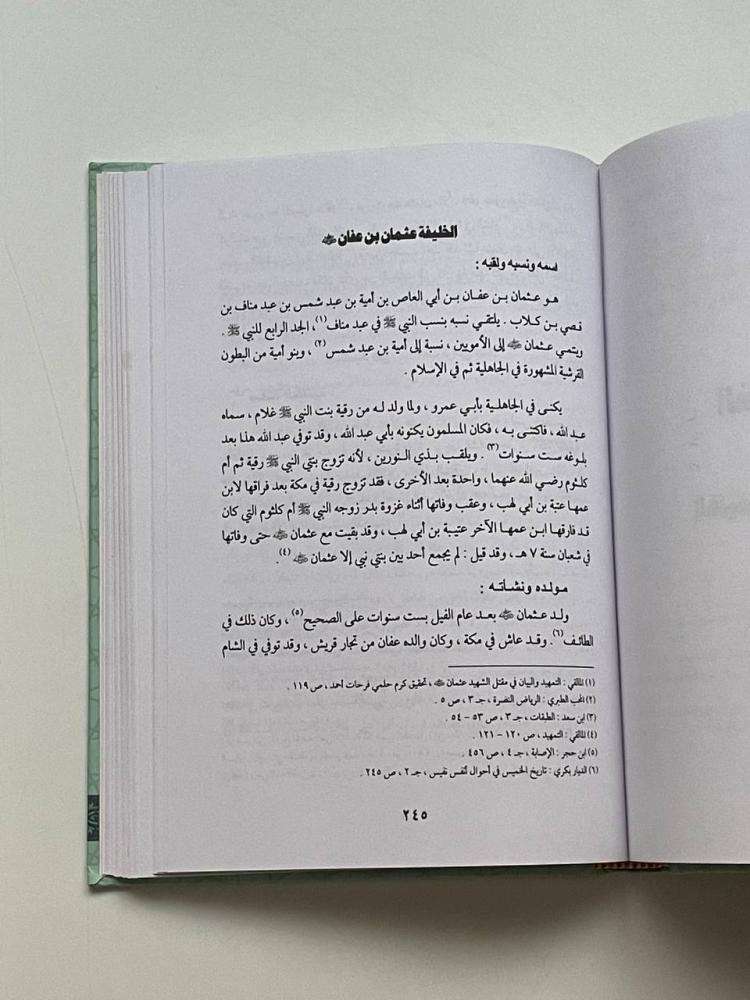 الخليفة عثمان بن عفان ﷺ
اسمه ونسبه ولقبه :
هو عثمان بن عفان بن أبي العاص بن أمية بن عبد شمس بن عبد مناف بن
قصي بن كلاب . يلتقي نسبه بنسب النبي ﷺ في عبد مناف(١)، الجد الرابع للنبي ﷺ .
وينتمي عثمان إلى الأمويين ، نسبة إلى أمية بن عبد شمس(٢) ، وبنو أمية من البطون
القرشية المشهورة في الجاهلية ثم في الإسلام .
يكنى في الجاهلية بأبي عمرو ، ولما ولد له من رقية بنت النبي ﷺ غلام ، سماه
عبد الله ، فاكتنى به ، فكان المسلمون يكنونه بأبي عبد الله ، وقد توفي عبد الله هذا بعد
بلوغه ست سنوات(٣) . ويلقب بذي النورين ، لأنه تزوج بنتي النبي ﷺ رقية ثم أم
كلثوم رضي الله عنهما ، واحدة بعد الأخرى ، فقد تزوج رقية في مكة بعد فراقها لابن
عمها عتبة بن أبي لهب ، وعقب وفاتها أثناء غزوة بدر زوجه النبي ﷺ أم كلثوم التي كان
قد فارقها ابن عمها الآخر عتيبة بن أبي لهب ، وقد بقيت مع عثمان حتى وفاتها
في شعبان سنة ٧ هـ ، وقد قيل : لم يجمع أحد بين بنتي نبي إلا عثمان (٤).
مولده ونشأته :
ولد عثمان بعد عام الفيل بست سنوات على الصحيح(٥) ، وكان ذلك في
الطائف(٦). وقد عاش في مكة ، وكان والده عفان من تجار قريش ، وقد توفي في الشام
(١) المالقي : التمهيد والبيان في مقتل الشهيد عثمان ، تحقيق كرم حلمي فرحات أحمد ، ص ١١٩ .
(٢) المحب الطبري : الرياض النضرة ، جـ ٣ ، ص ٥ .
(٣) ابن سعد : الطبقات ، جـ ٣ ، ص ٥٣ – ٥٤ .
(٤) المالقي : التمهيد ، ص ١٢٠ – ١٢١ .
(٥) ابن حجر : الإصابة ، جـ ٤ ، ص ٤٥٦ .
(٦) الديار بكري : تاريخ الخميس في أحوال أنفس نفيس ، جـ ٢ ، ص ٢٤٥ .
٢٤٥